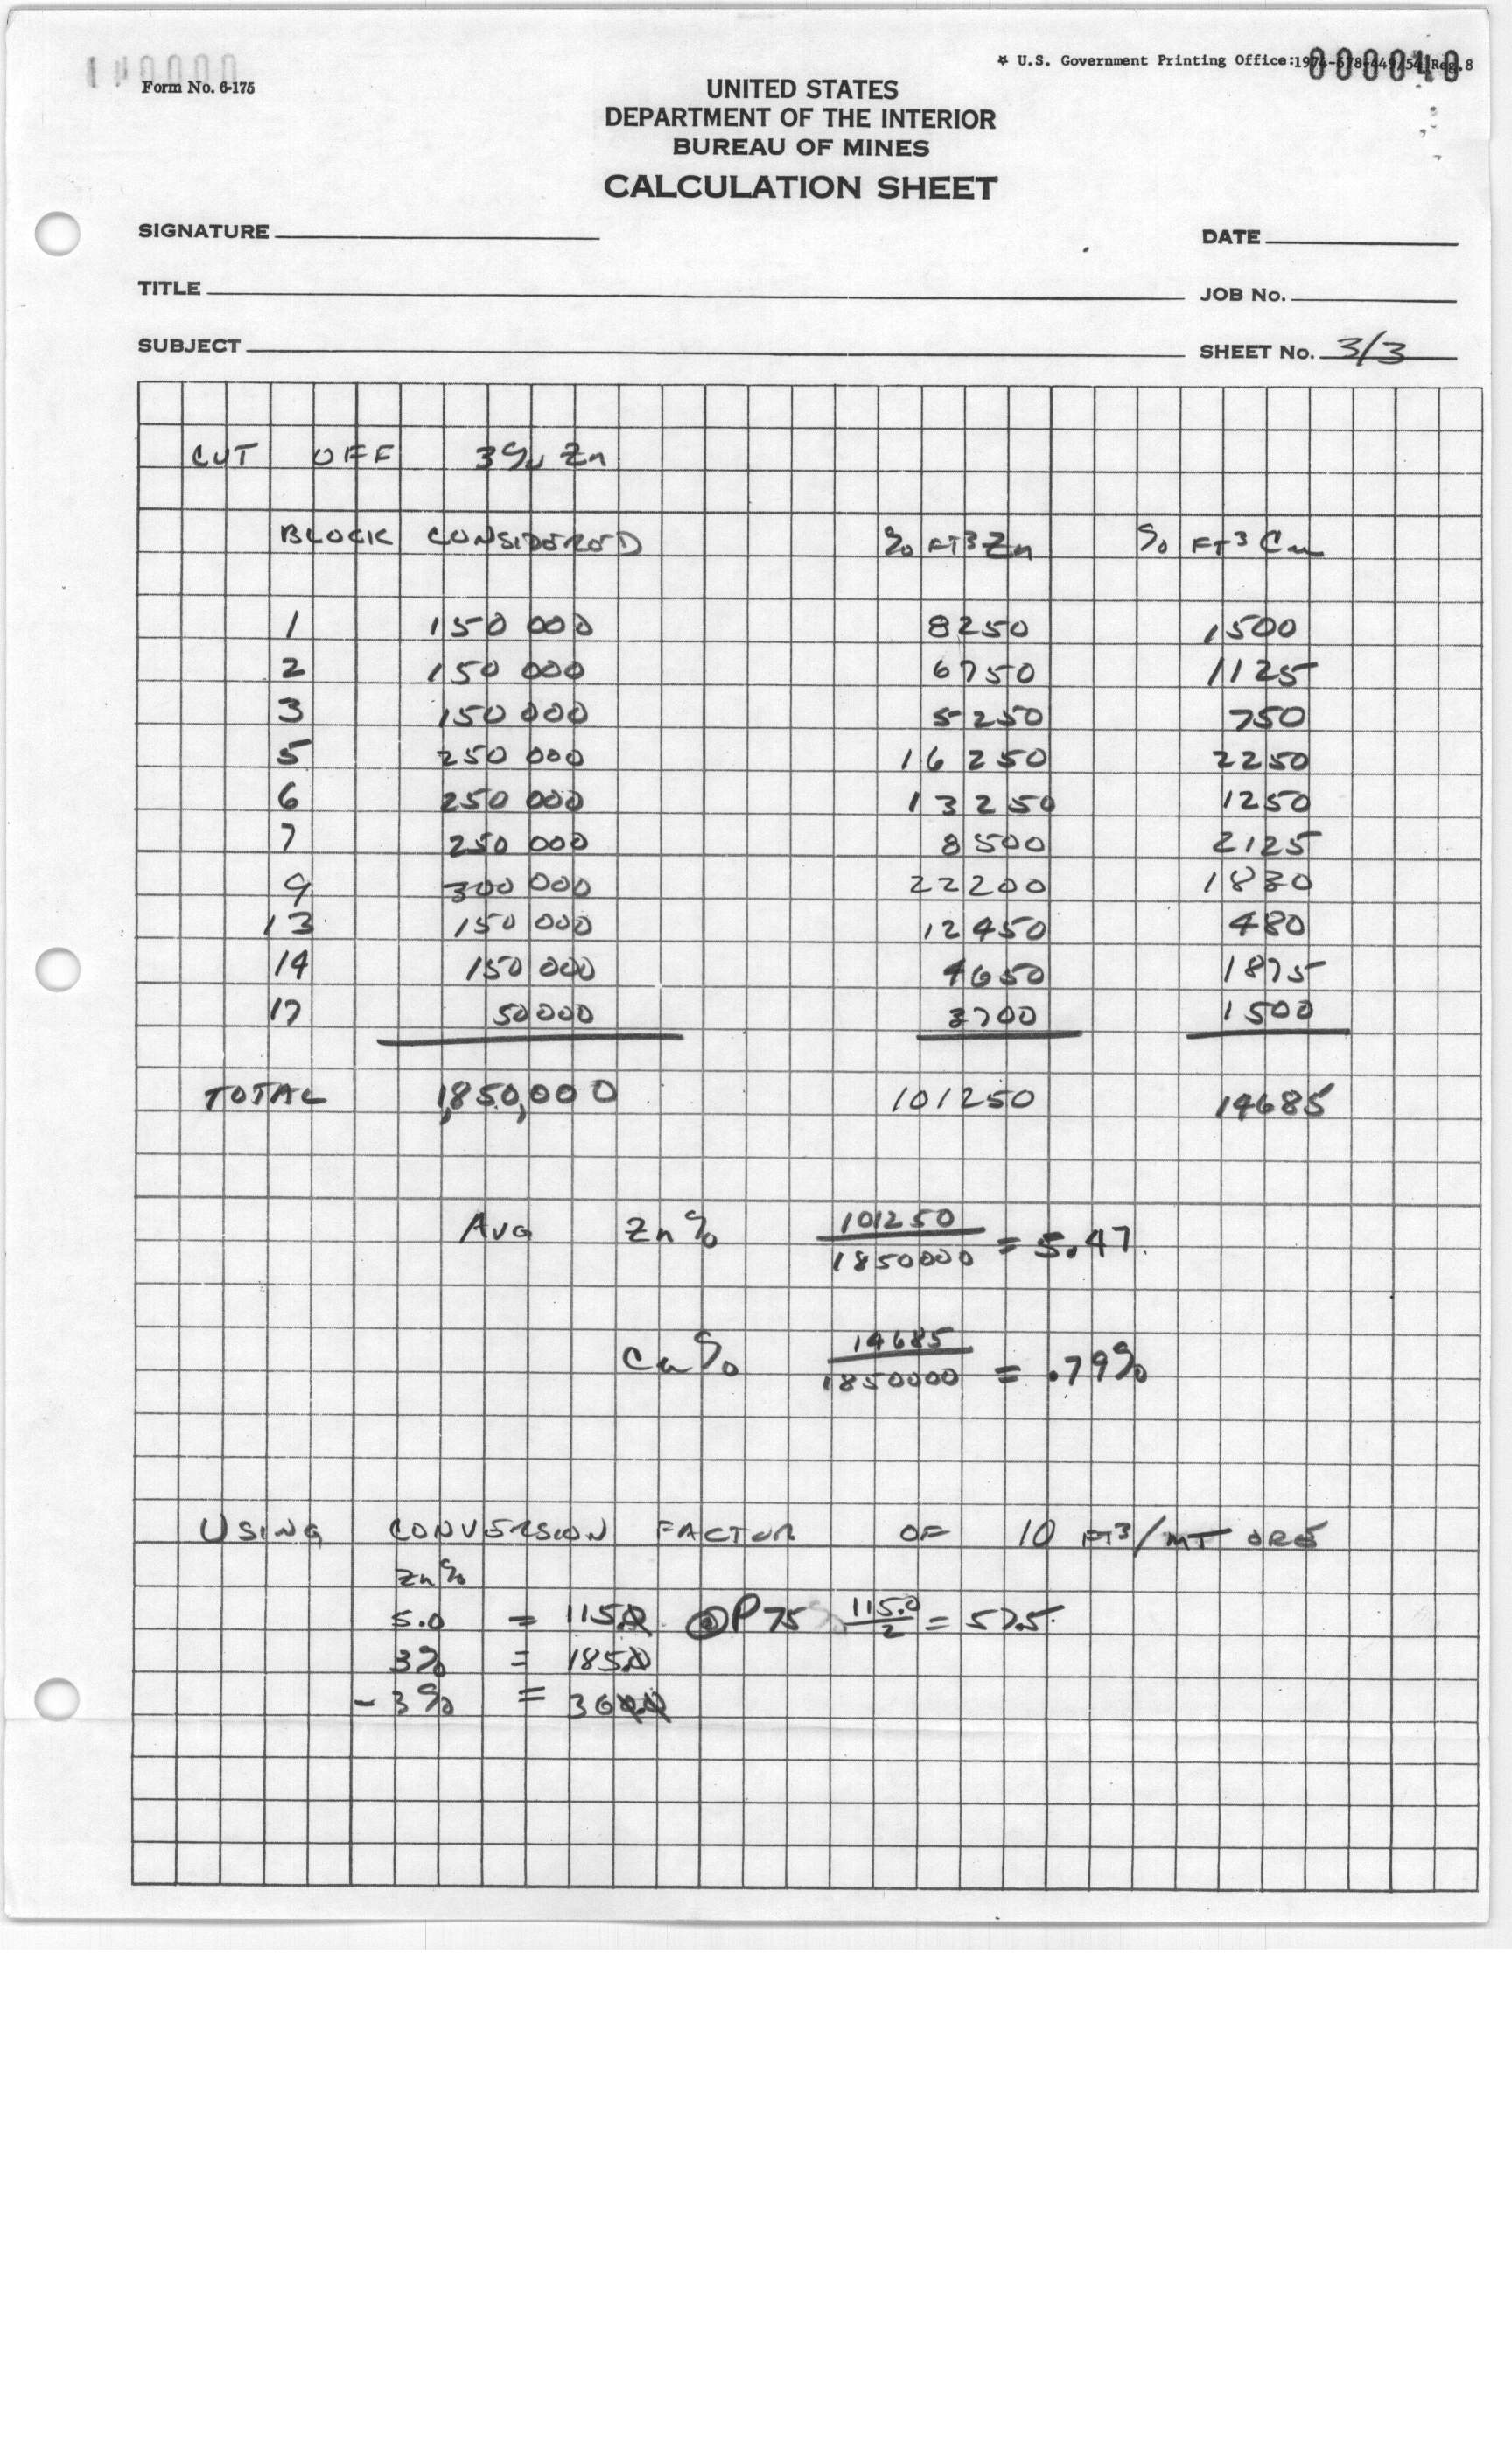 140000
* U.S. Government Printing Office:1974-678-449/54 Reg.8
000040
Form No. 6-175
UNITED STATES
DEPARTMENT OF THE INTERIOR
BUREAU OF MINES
CALCULATION SHEET
SIGNATURE DATE
TITLE JOB No.
SUBJECT SHEET No. 3/3
CUT OFF 3% Zn
BLOCK CONSIDERED % FT³ Zn % FT³ Cu
1 150 000 8250 1500
2 150 000 6750 1125
3 150 000 5250 750
5 250 000 16 250 2250
6 250 000 13250 1250
7 250 000 8500 2125
9 300 000 22200 1830
13 150 000 12450 480
14 150 000 4650 1875
17 50000 3700 1500
TOTAL 1,850,000 101250 14685
AVG Zn% 101250/1850000 = 5.47
Cu% 14685/1850000 = .79%
USING CONVERSION FACTOR OF 10 FT³/MT ORE
Zn%
5.0 = 115 @P75 115.0/2 = 57.5
3% = 185
-3% = 36